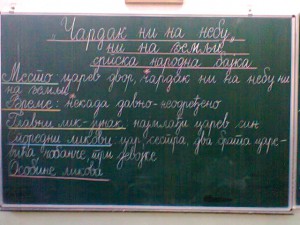 „Чардак ни на небу
ни на земљи"
српска народна бајка
Место: царев двор, чардак ни на небу ни
на земљи
Време: некада давно-неодређено
Главни лик-јунак: најмлађи царев син
споредни ликови: цар, сестра, два брата царе-
вића, чобанче, три девојке
Особине ликова